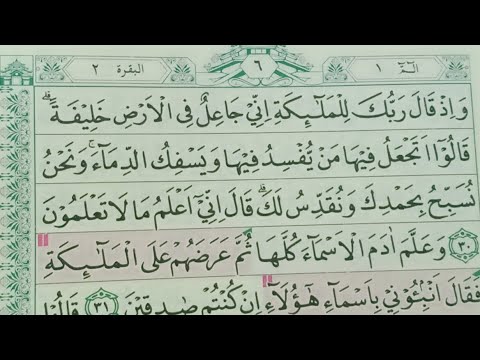 الٓمّٓ ١
٦
البقرة ٢
وَاِذْ قَالَ رَبُّكَ لِلْمَلٰۤىِٕكَةِ اِنِّيْ جَاعِلٌ فِى الْاَرْضِ خَلِيْفَةً ۗ
قَالُوْٓا اَتَجْعَلُ فِيْهَا مَنْ يُّفْسِدُ فِيْهَا وَيَسْفِكُ الدِّمَاۤءَۚ وَنَحْنُ
نُسَبِّحُ بِحَمْدِكَ وَنُقَدِّسُ لَكَ ۗ قَالَ اِنِّيْٓ اَعْلَمُ مَا لَا تَعْلَمُوْنَ
٣٠ وَعَلَّمَ اٰدَمَ الْاَسْمَاۤءَ كُلَّهَا ثُمَّ عَرَضَهُمْ عَلَى الْمَلٰۤىِٕكَةِ
فَقَالَ اَنْۢبِـُٔوْنِيْ بِاَسْمَاۤءِ هٰٓؤُلَاۤءِ اِنْ كُنْتُمْ صٰدِقِيْنَ ٣١ قَالُوْا